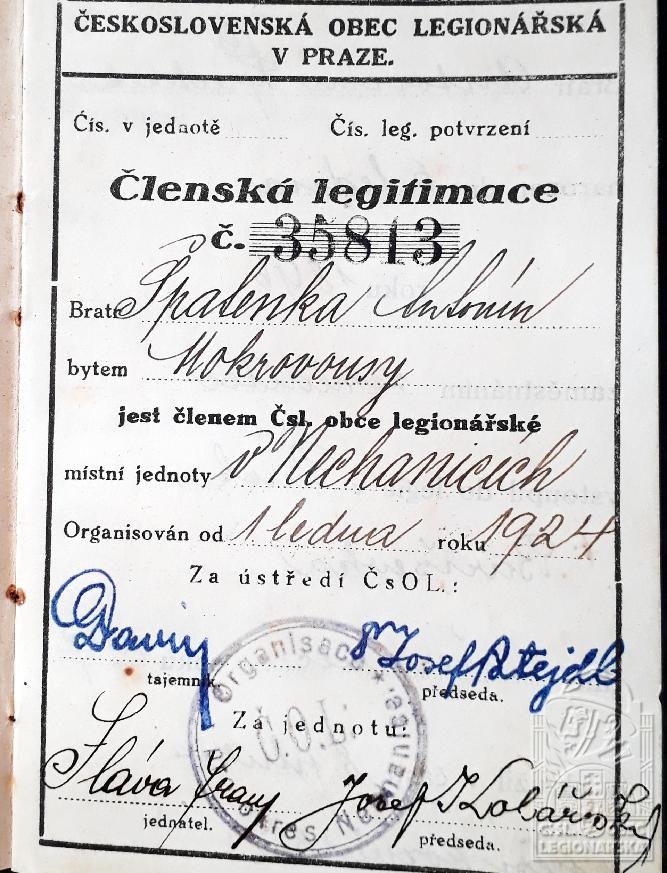 ČESKOSLOVENSKÁ OBEC LEGIONÁŘSKÁ
V PRAZE.
Čís. v jednotě Čís. leg. potvrzení
Členská legitimace
č. 35813
Bratr Špatenka Antonín
bytem Mokrovousy
jest členem Čsl. obce legionářské
místní jednoty v Nechanicích
Organisován od 1 ledna roku 1924
Za ústředí ČsOL.:
Dr Josef Patejdl
tajemník. předseda.
Organisace
Za jednotu:
Sláva Josef
jednatel. předseda.
okres
LEGIONÁŘSKÁ